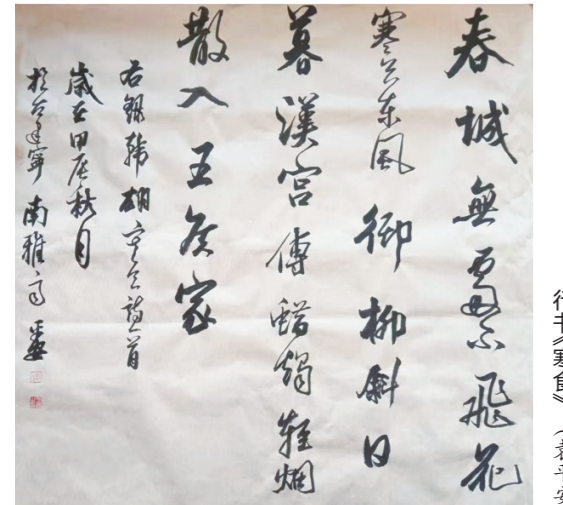 春城無處不飛花
寒食东風御柳斜日
暮漢宮傳蜡燭輕烟
散入五侯家
右錄韩翃寒食詩一首
歲在甲辰秋月
於古建寧南雅
行书《寒食》（袁平安